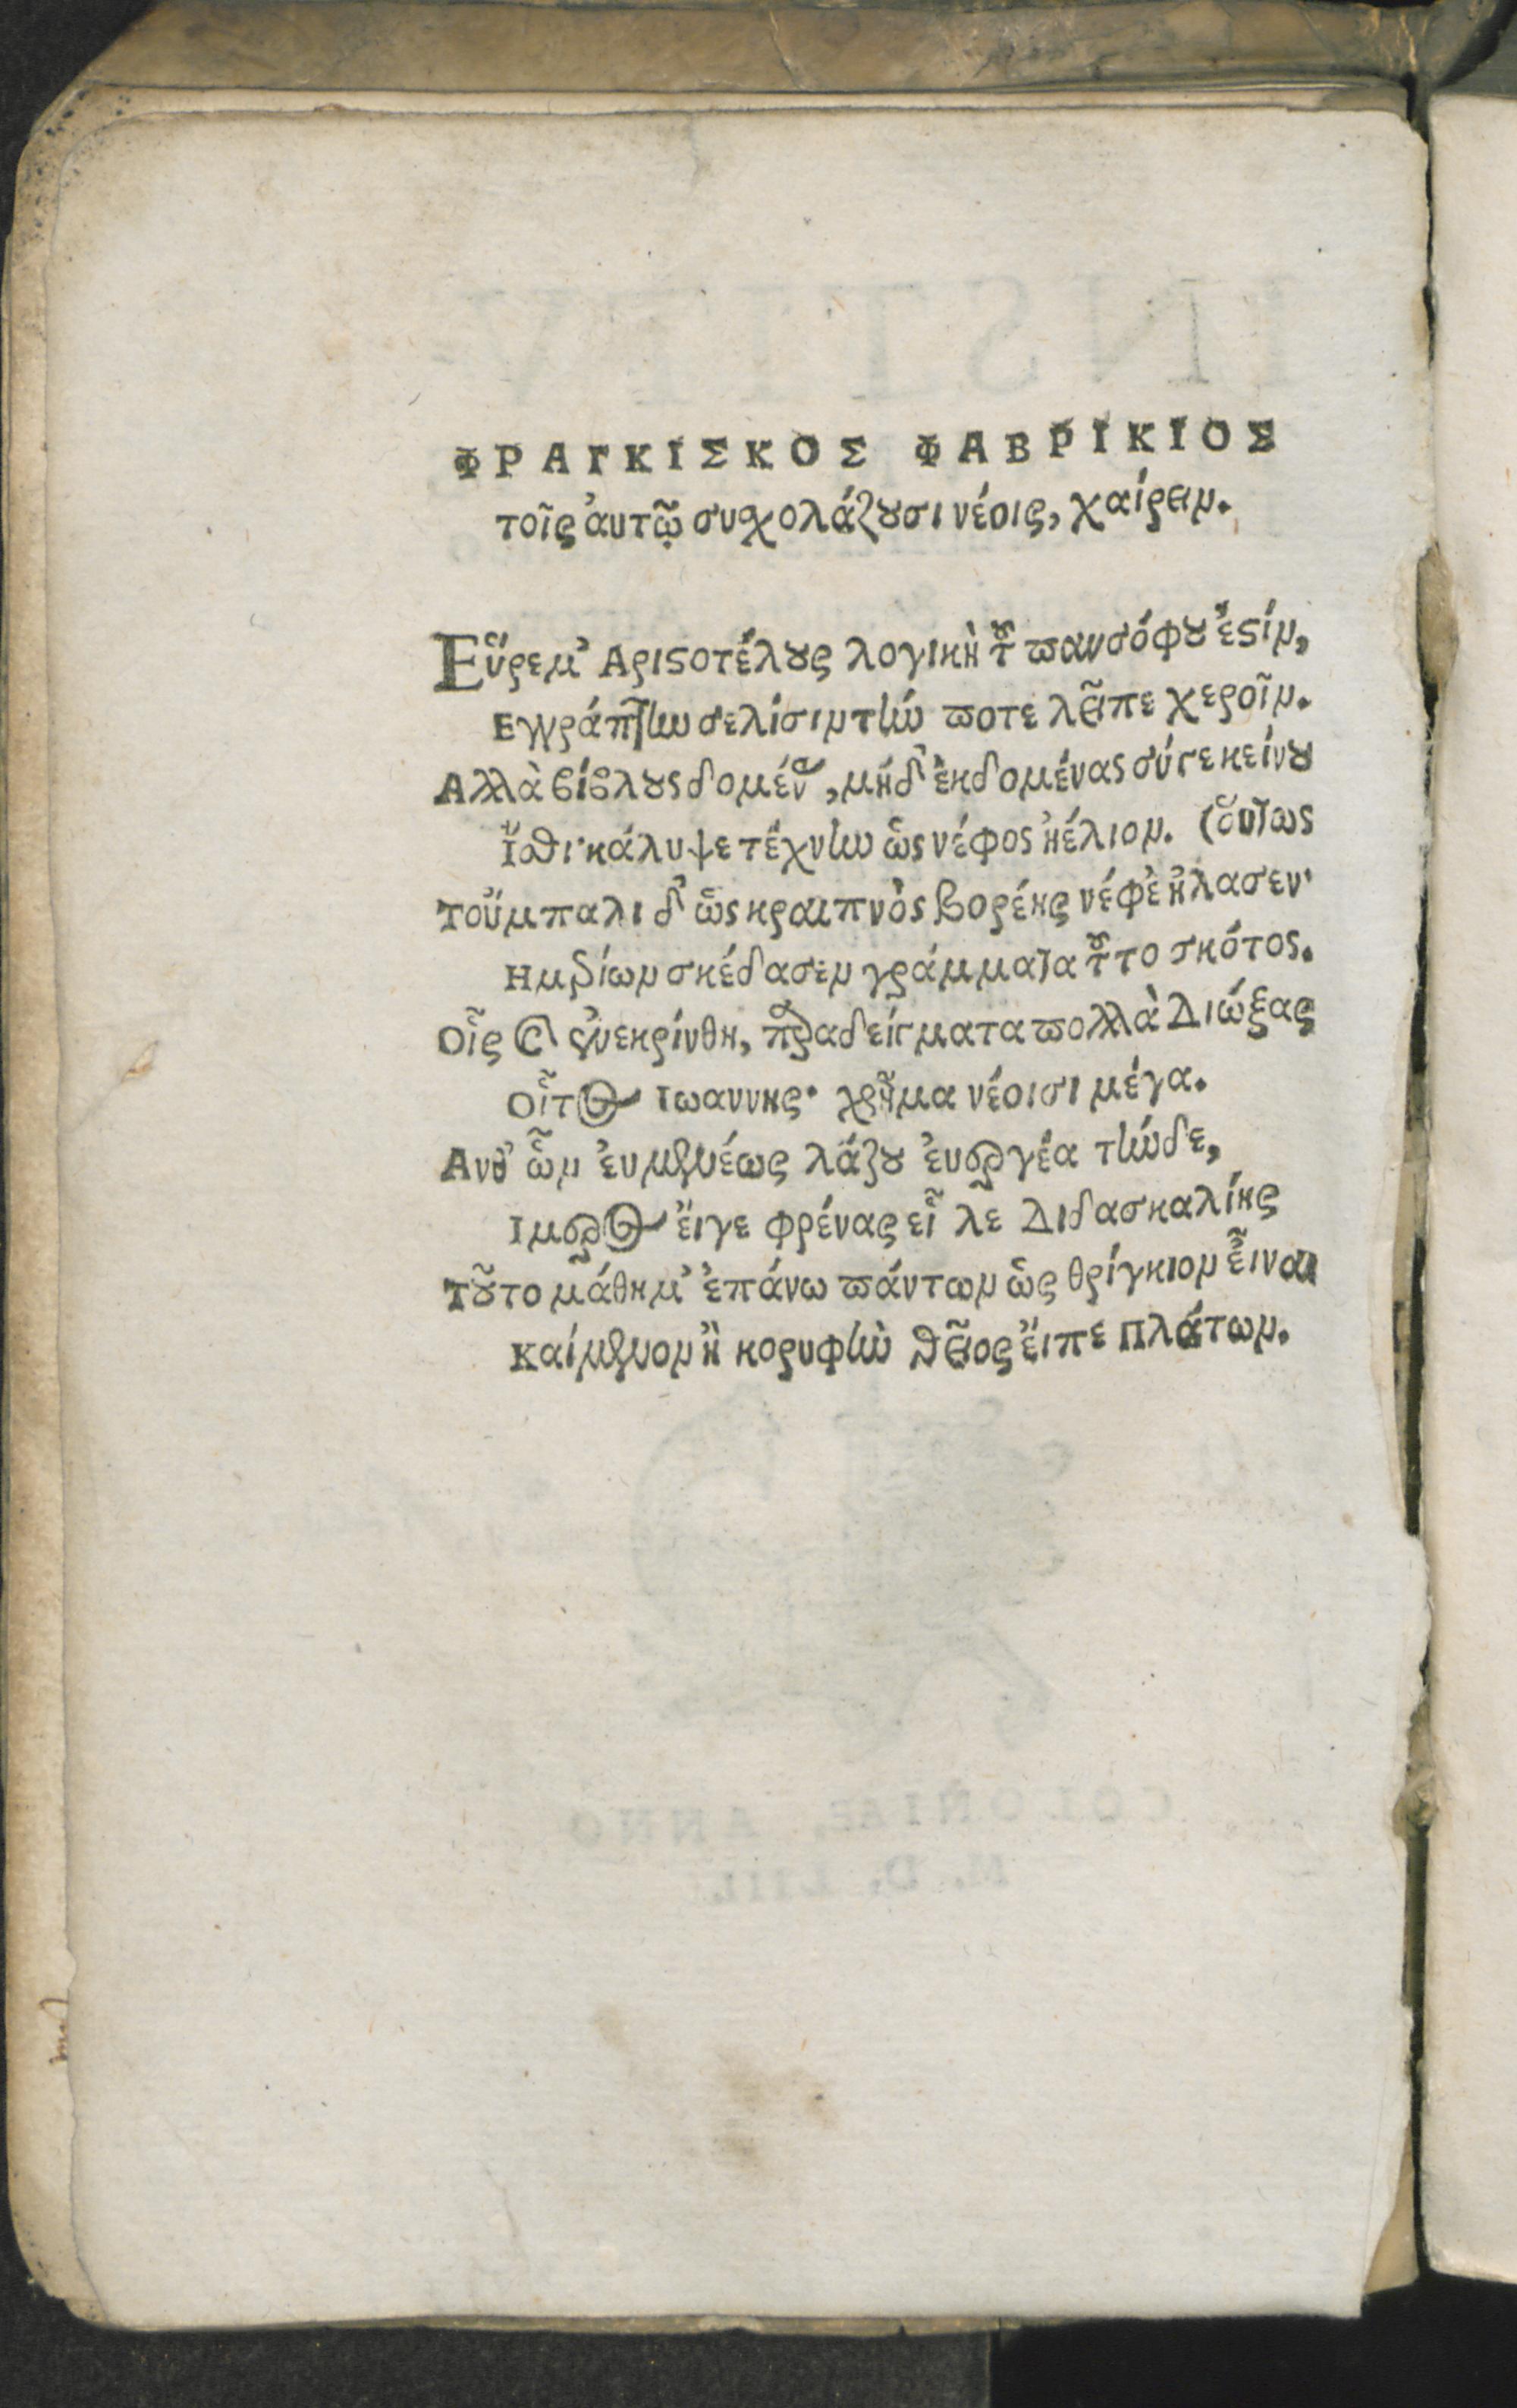 ΦΡΑΓΚΙΣΚΟΣ ΦΑΒΡΙΚΙΟΣ
τοῖς ἀυτῷ συχολάζουσι νέοις, χαίρειν.
Εὕρεμ' Αριστοτέλους λογικὴ τοῦ πανσόφου ἐστίν,
Εγγράπτην σελίσιν τήν ποτε λεῖπε χεροῖν.
Αλλὰ βίβλους δομένα, μήδ' ἐκδομένας σύγ' εκείνου
Ἴσθι· κάλυψε τέχνην ὣς νέφος ἠέλιον. (ὅυτως
Τοὔμπαλι δ' ὣς κραιπνὸς βορέης νέφε' ἤλασεν·
Ημερίων σκέδασεν γράμματα τοῦτο σκότος.
Οἷς καὶ συνεκρίνθη, παραδείγματα πολλὰ Διώξας
Οἶτος Ιωαννης· χρῆμα νέοισι μέγα.
Ανθ' ὧν ἐυμενέως λάζου ἐυεργέα τήνδε,
Ιμερος ἔιγε φρένας εἷλε Διδασκαλίης
Τοῦτο μάθημ' ἐπάνω πάντων ὣς θρίγκιον εἶναι
Καί μένον ἢ κορυφὴν θεῖος ἔιπε Πλάτων.